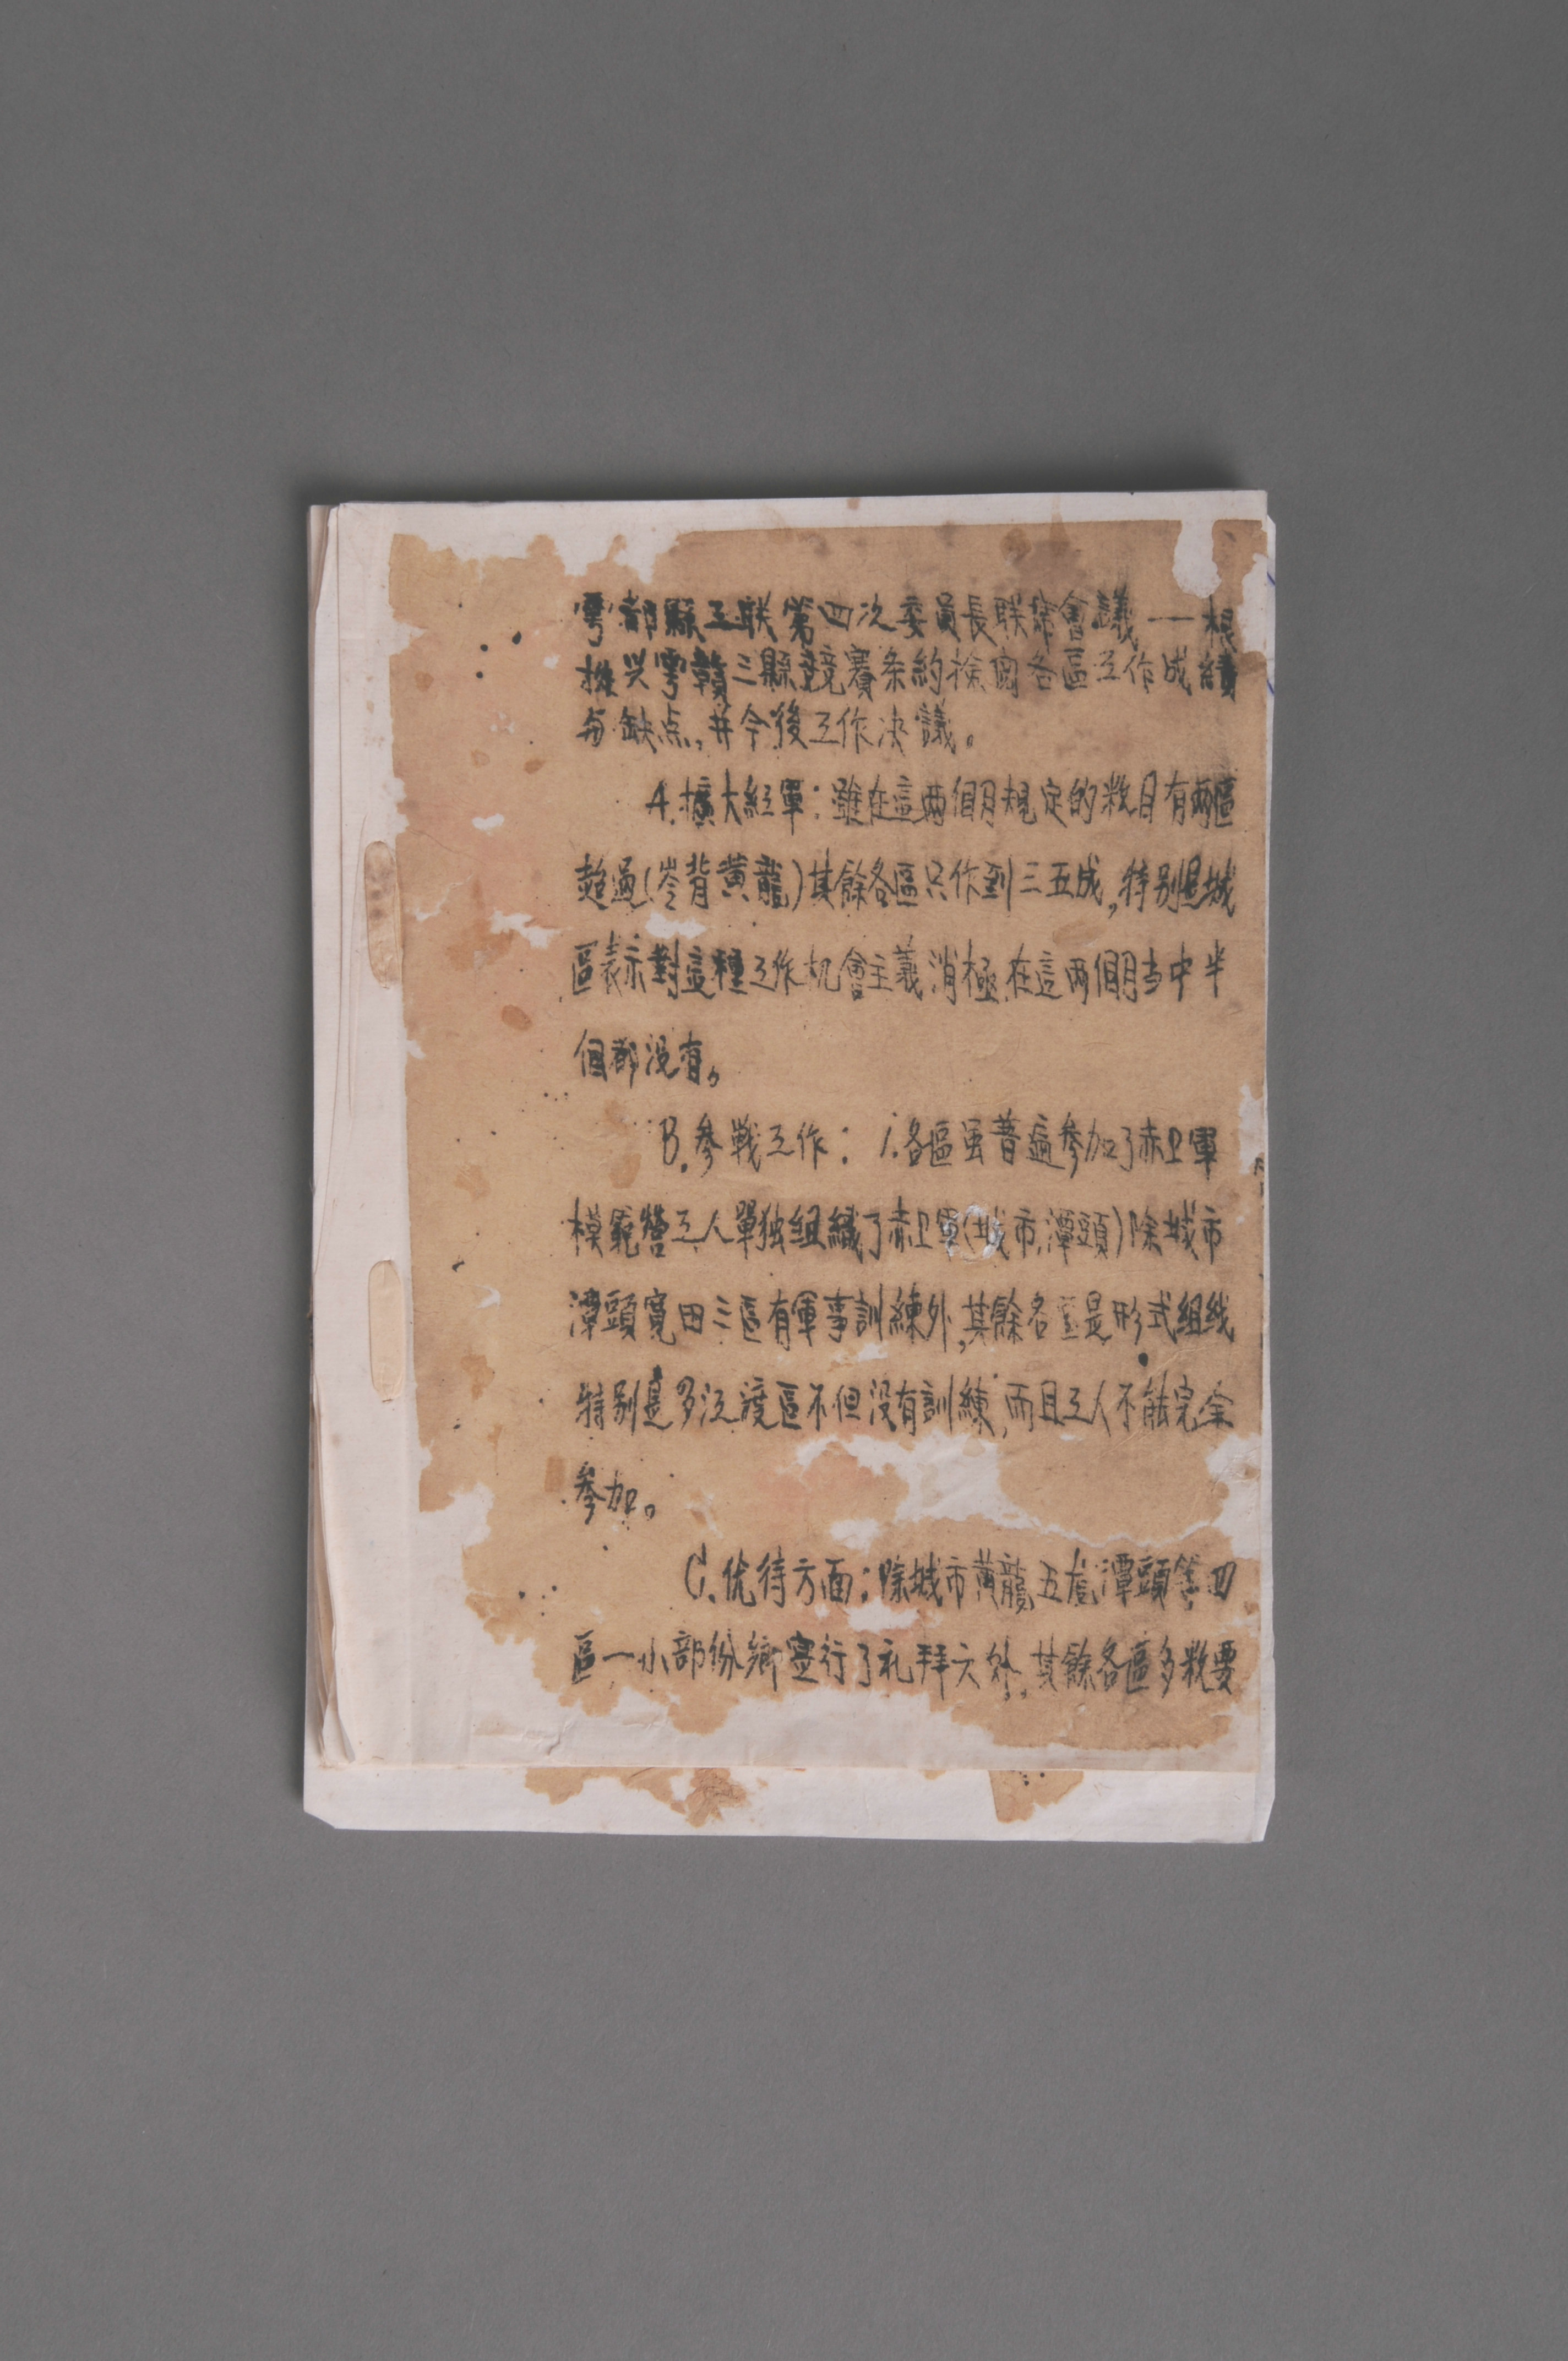 雩都縣工联第四次委員長联席會議——根
據兴雩贛三縣競賽条約檢閱各區工作成績
与缺点,并今後工作决議。
A.擴大紅軍:雖在這两個月規定的数目有两區
超過(岑背黄龍)其餘各區只作到三五成,特别是城
區表示對這種工作机會主義消極,在這两個月当中半
個都没有。
B.参戰工作:1.各區虽普遍参加了赤卫軍
模範營工人單独組織了赤卫軍(城市,潭頭)除城市
潭頭寬田三區有軍事訓練外,其餘各區是形式組线
特别是多江渡區不但没有訓練,而且工人不能完全
参加。
C.优待方面:除城市黄龍,五,潭頭等四
區一小部份鄉实行了礼拜六外,其餘各區多数要